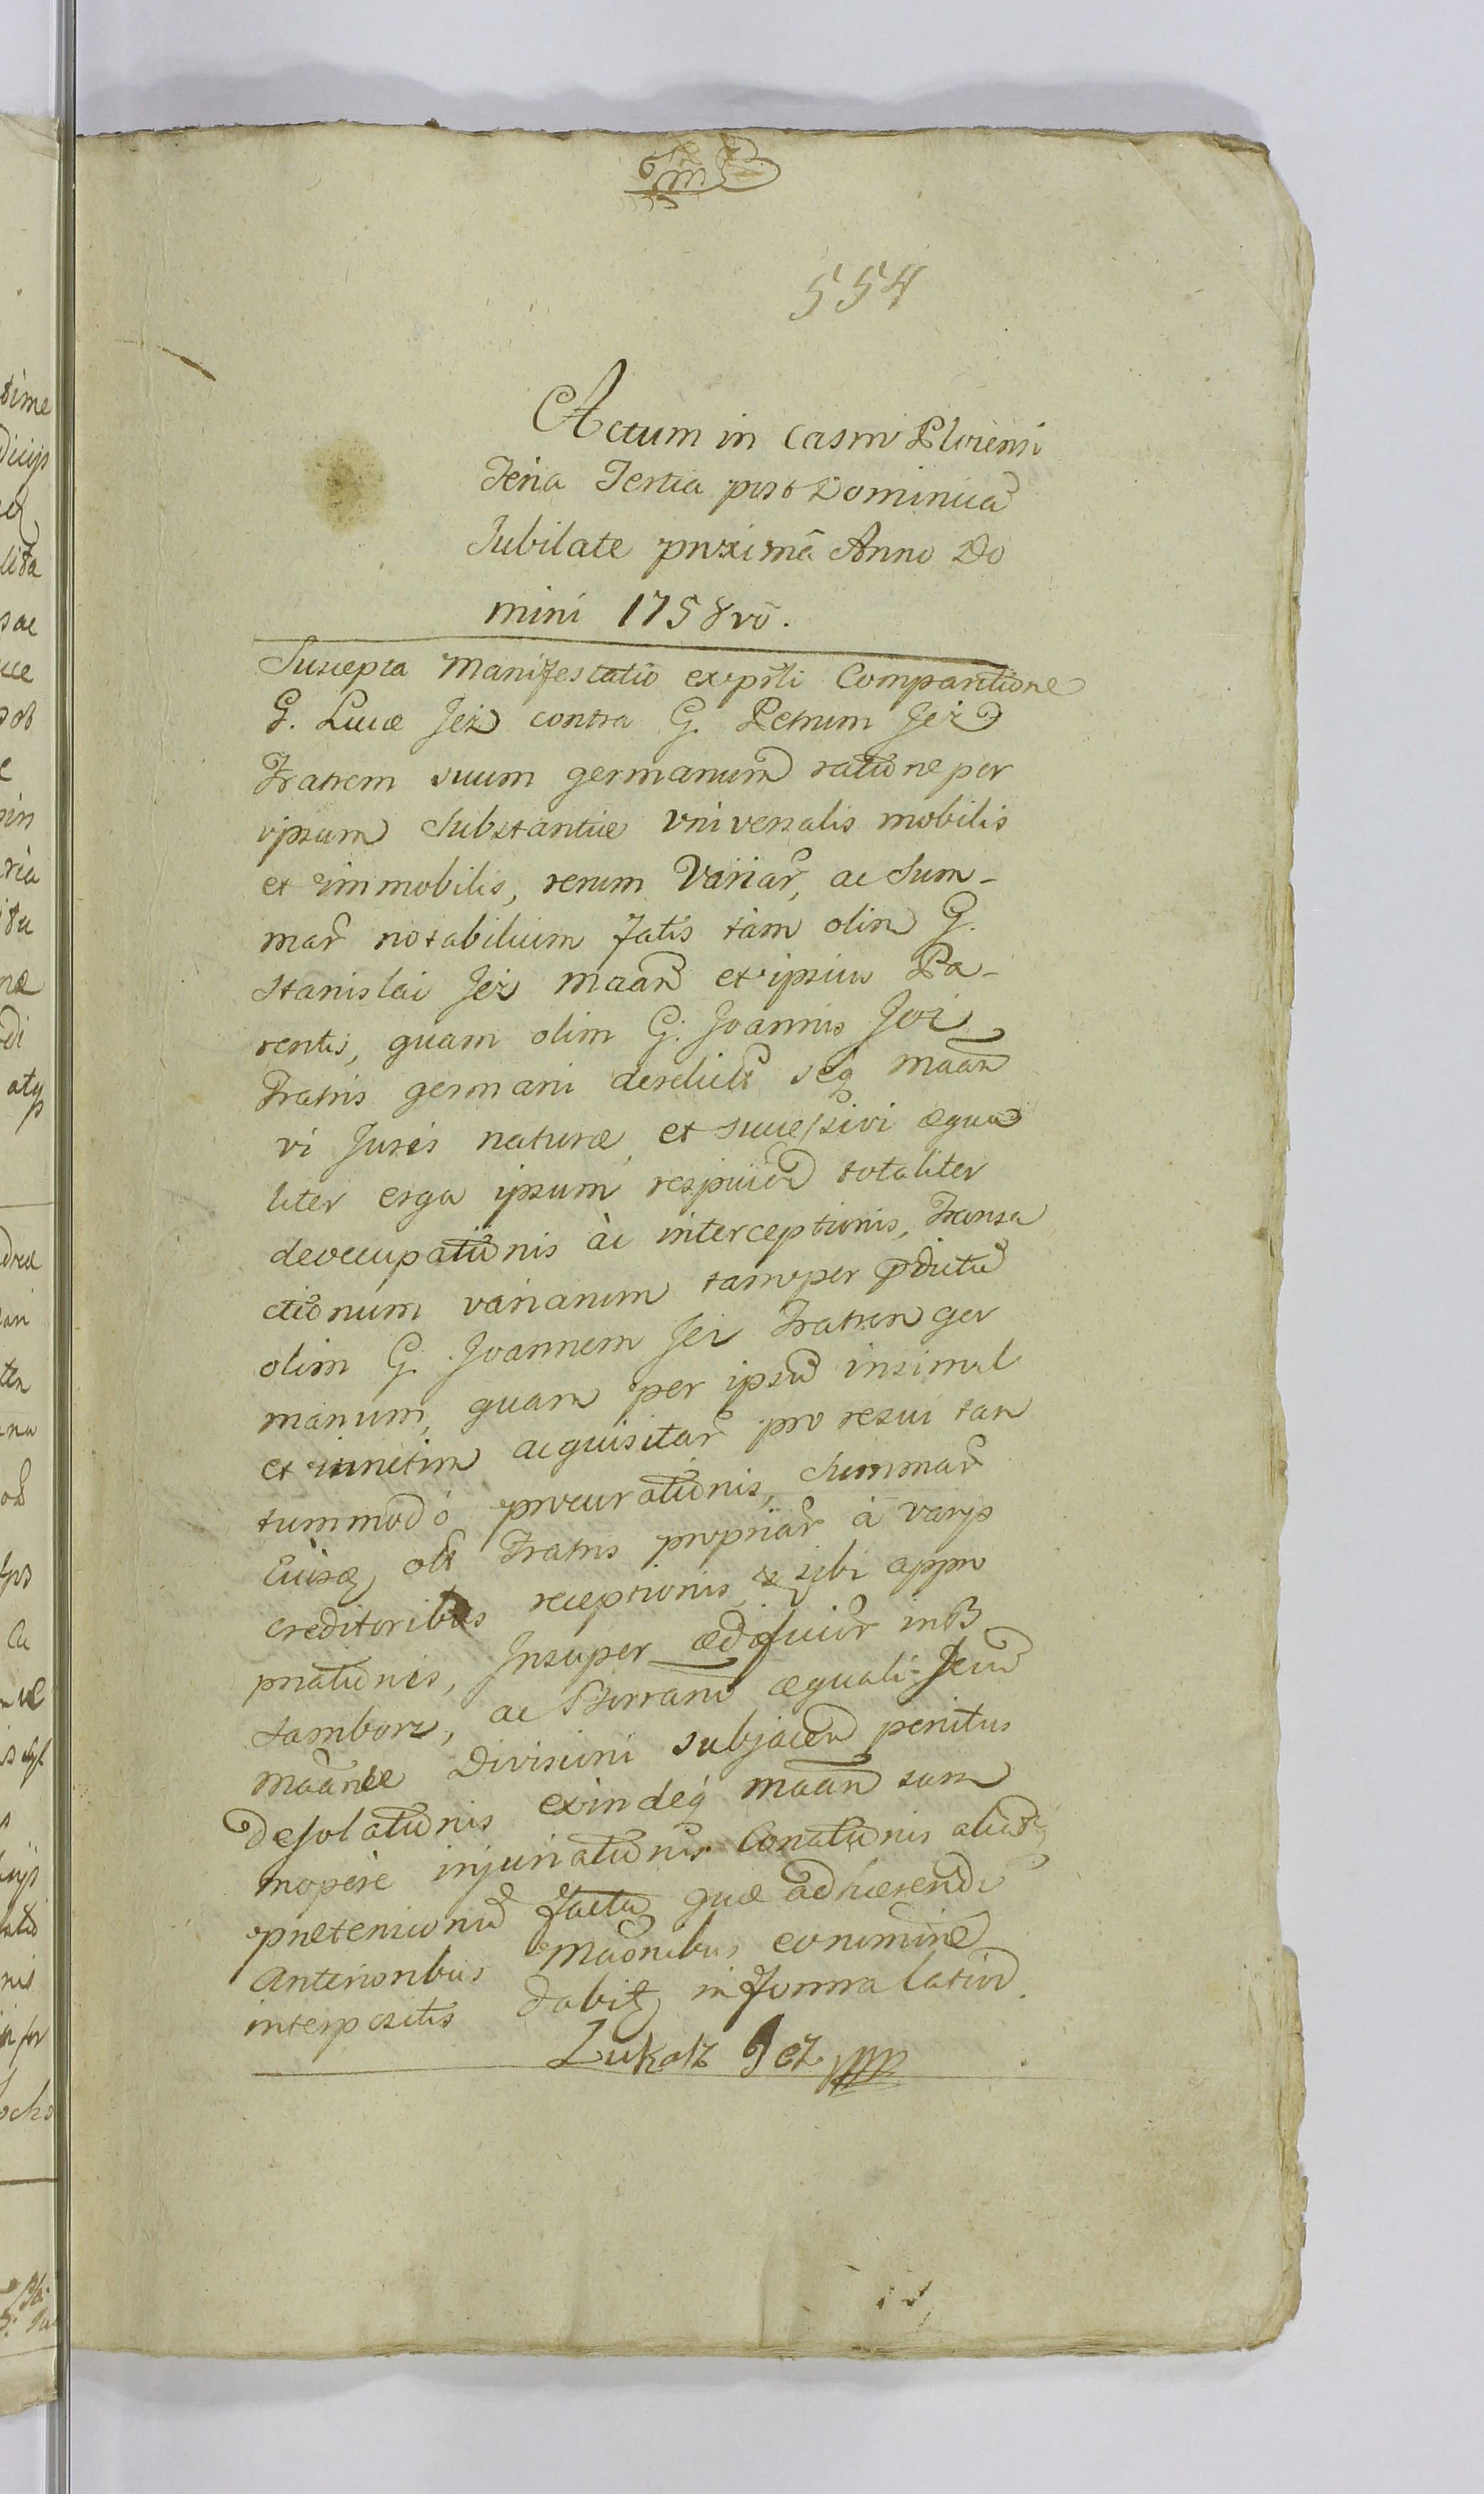 554
Actum in Castro Plocensi
Feria Tertia post Dominicã
Jubilate proximã Anno Do
mini 1758vo.
Suscepta Manifestatio ex psti Comparitione
G. Lucæ Jeż contra G. Petrum Jeż
Fratrem suum germanum ratione per
ipsum Substantiæ vniversalis mobilis
et immobilis, rerum Variar, ac Sum-
mar notabilium fatis tàm olim G.
Stanislai Jeż Maan et ipsius Pa-
rentis, quam olim G. Joannis Jeż
Fratris germani derelict seq Maan
vi Juris naturæ, et successivi æqua
liter erga ipsum respicien totaliter
deoccupationis àc interceptionis, Transa
ctionum variarum tam per pdictũ
olim G. Joannem Jeż Fratrem ger
manum, quam per ipsũ insimul
et iunctim acquisitar pro re sui tan
tummodò procurationis, Summar
Eiusq olt Fratris propriar à varijs
creditoribus receptionis, & sibi appro
priationis, Insuper ædificior in B
tamborz, ac æquali
Maan Divisioni subjacen penitus
Desolationis exindeq Maan sum
mopere injuriationis Conationis aliarq
prætensionũ factar, quæ adhærendo
Anterioribus Maonibus eo nomine
interpositis dabit in forma latiori.
Łukasz Jeż mpp